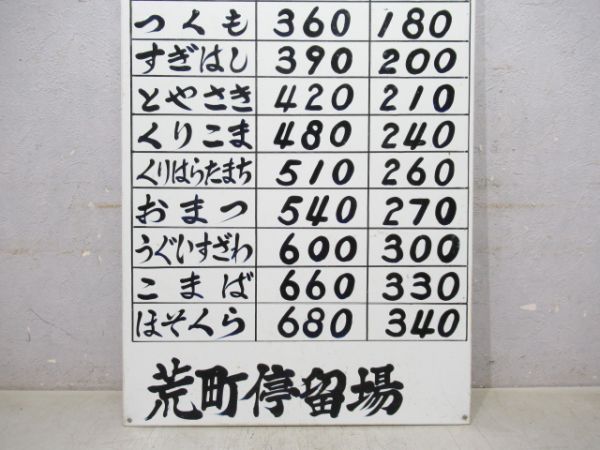 つくも 360 180
すぎはし 390 200
とやさき 420 210
くりこま 480 240
くりはらたまち 510 260
おまつ 540 270
うぐいすざわ 600 300
こまば 660 330
ほそくら 680 340
荒町停留場